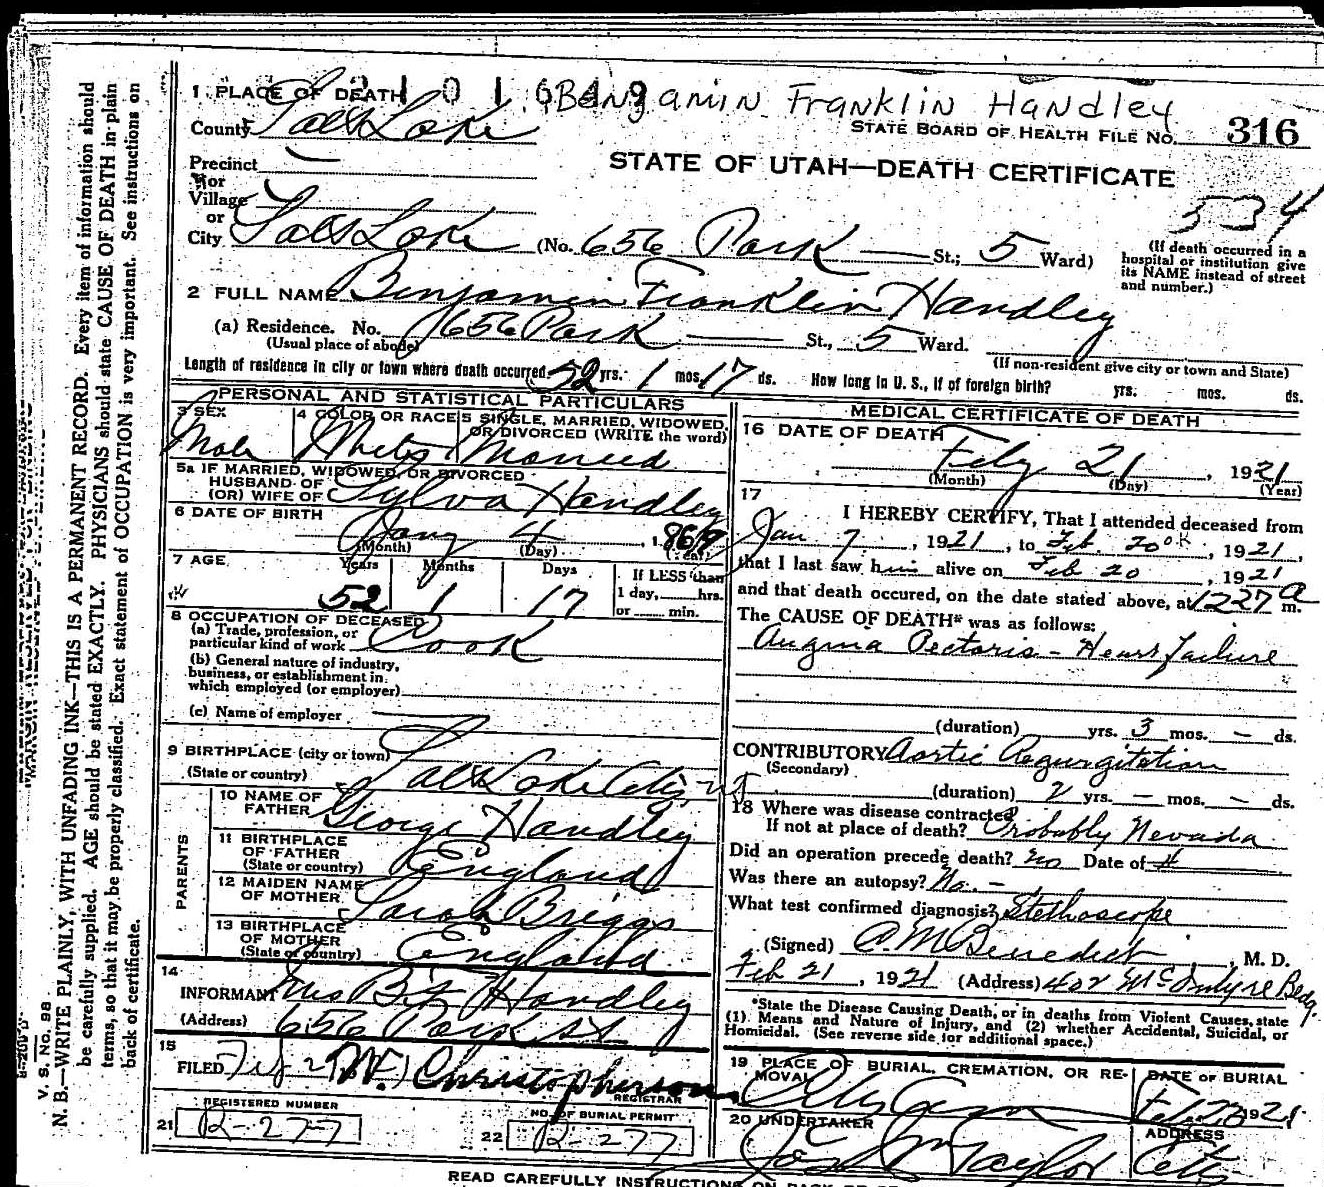 2101649
Benjamin Franklin Handley
1 PLACE OF DEATH
County Salt Lake
STATE BOARD OF HEALTH FILE No. 316
Precinct
or
Village
STATE OF UTAH—DEATH CERTIFICATE
534
or
City Salt Lake (No. 656 Park St.; 5 Ward)
(If death occurred in a hospital or institution give its NAME instead of street and number.)
2 FULL NAME Benjamin Franklin Handley
(a) Residence. No. 656 Park St., 5 Ward.
(Usual place of abode) (If non-resident give city or town and State)
Length of residence in city or town where death occurred 52 yrs. 1 mos. 17 ds. How long in U. S., if of foreign birth? yrs. mos. ds.
PERSONAL AND STATISTICAL PARTICULARS
3 SEX Male
4 COLOR OR RACE White
5 SINGLE, MARRIED, WIDOWED, OR DIVORCED (WRITE the word) Married
5a IF MARRIED, WIDOWED, OR DIVORCED
HUSBAND OF
(OR) WIFE OF Sylva Handley
6 DATE OF BIRTH
Jany 4, 1869
(Month) (Day) (Year)
7 AGE Years Months Days If LESS than
1 day, hrs.
52 1 17 or min.
8 OCCUPATION OF DECEASED
(a) Trade, profession, or
particular kind of work Cook
(b) General nature of industry,
business, or establishment in
which employed (or employer)
(c) Name of employer
9 BIRTHPLACE (city or town)
(State or country) Salt Lake City Ut
PARENTS
10 NAME OF
FATHER George Handley
11 BIRTHPLACE
OF FATHER
(State or country) England
12 MAIDEN NAME
OF MOTHER Sarah Briggs
13 BIRTHPLACE
OF MOTHER
(State or country) England
14
INFORMANT Mrs B F Handley
(Address) 656 Park St
15
FILED Christopherson
REGISTRAR
REGISTERED NUMBER
21 R-277
NO. OF BURIAL PERMIT
22 R-277
MEDICAL CERTIFICATE OF DEATH
16 DATE OF DEATH
Feby 21, 1921
(Month) (Day) (Year)
17
I HEREBY CERTIFY, That I attended deceased from
Jan 7, 1921, to Feb. 20, 1921,
that I last saw him alive on Feb 20, 1921
and that death occured, on the date stated above, at 1227 a m.
The CAUSE OF DEATH* was as follows:
Angina Pectoris - Heart failure
(duration) yrs. 3 mos. — ds.
CONTRIBUTORY Aortic Regurgitation
(Secondary)
(duration) 2 yrs. — mos. — ds.
18 Where was disease contracted
If not at place of death? Probably Nevada
Did an operation precede death? no Date of
Was there an autopsy? No. —
What test confirmed diagnosis? Stethoscope
(Signed) A. M. Benedict, M. D.
Feb 21, 1921 (Address) 402 McIntyre Bldg.
*State the Disease Causing Death, or in deaths from Violent Causes, state
(1) Means and Nature of Injury, and (2) whether Accidental, Suicidal, or
Homicidal. (See reverse side for additional space.)
19 PLACE OF BURIAL, CREMATION, OR RE-
MOVAL City Cem
DATE OF BURIAL
Feb 23 1921
20 UNDERTAKER
Jos Wm Taylor
ADDRESS
City
READ CAREFULLY INSTRUCTIONS ON BACK OF
V. S. No. 98
N. B.—WRITE PLAINLY, WITH UNFADING INK—THIS IS A PERMANENT RECORD. Every item of information should
be carefully supplied. AGE should be stated EXACTLY. PHYSICIANS should state CAUSE OF DEATH in plain
terms, so that it may be properly classified. Exact statement of OCCUPATION is very important. See instructions on
back of certificate.